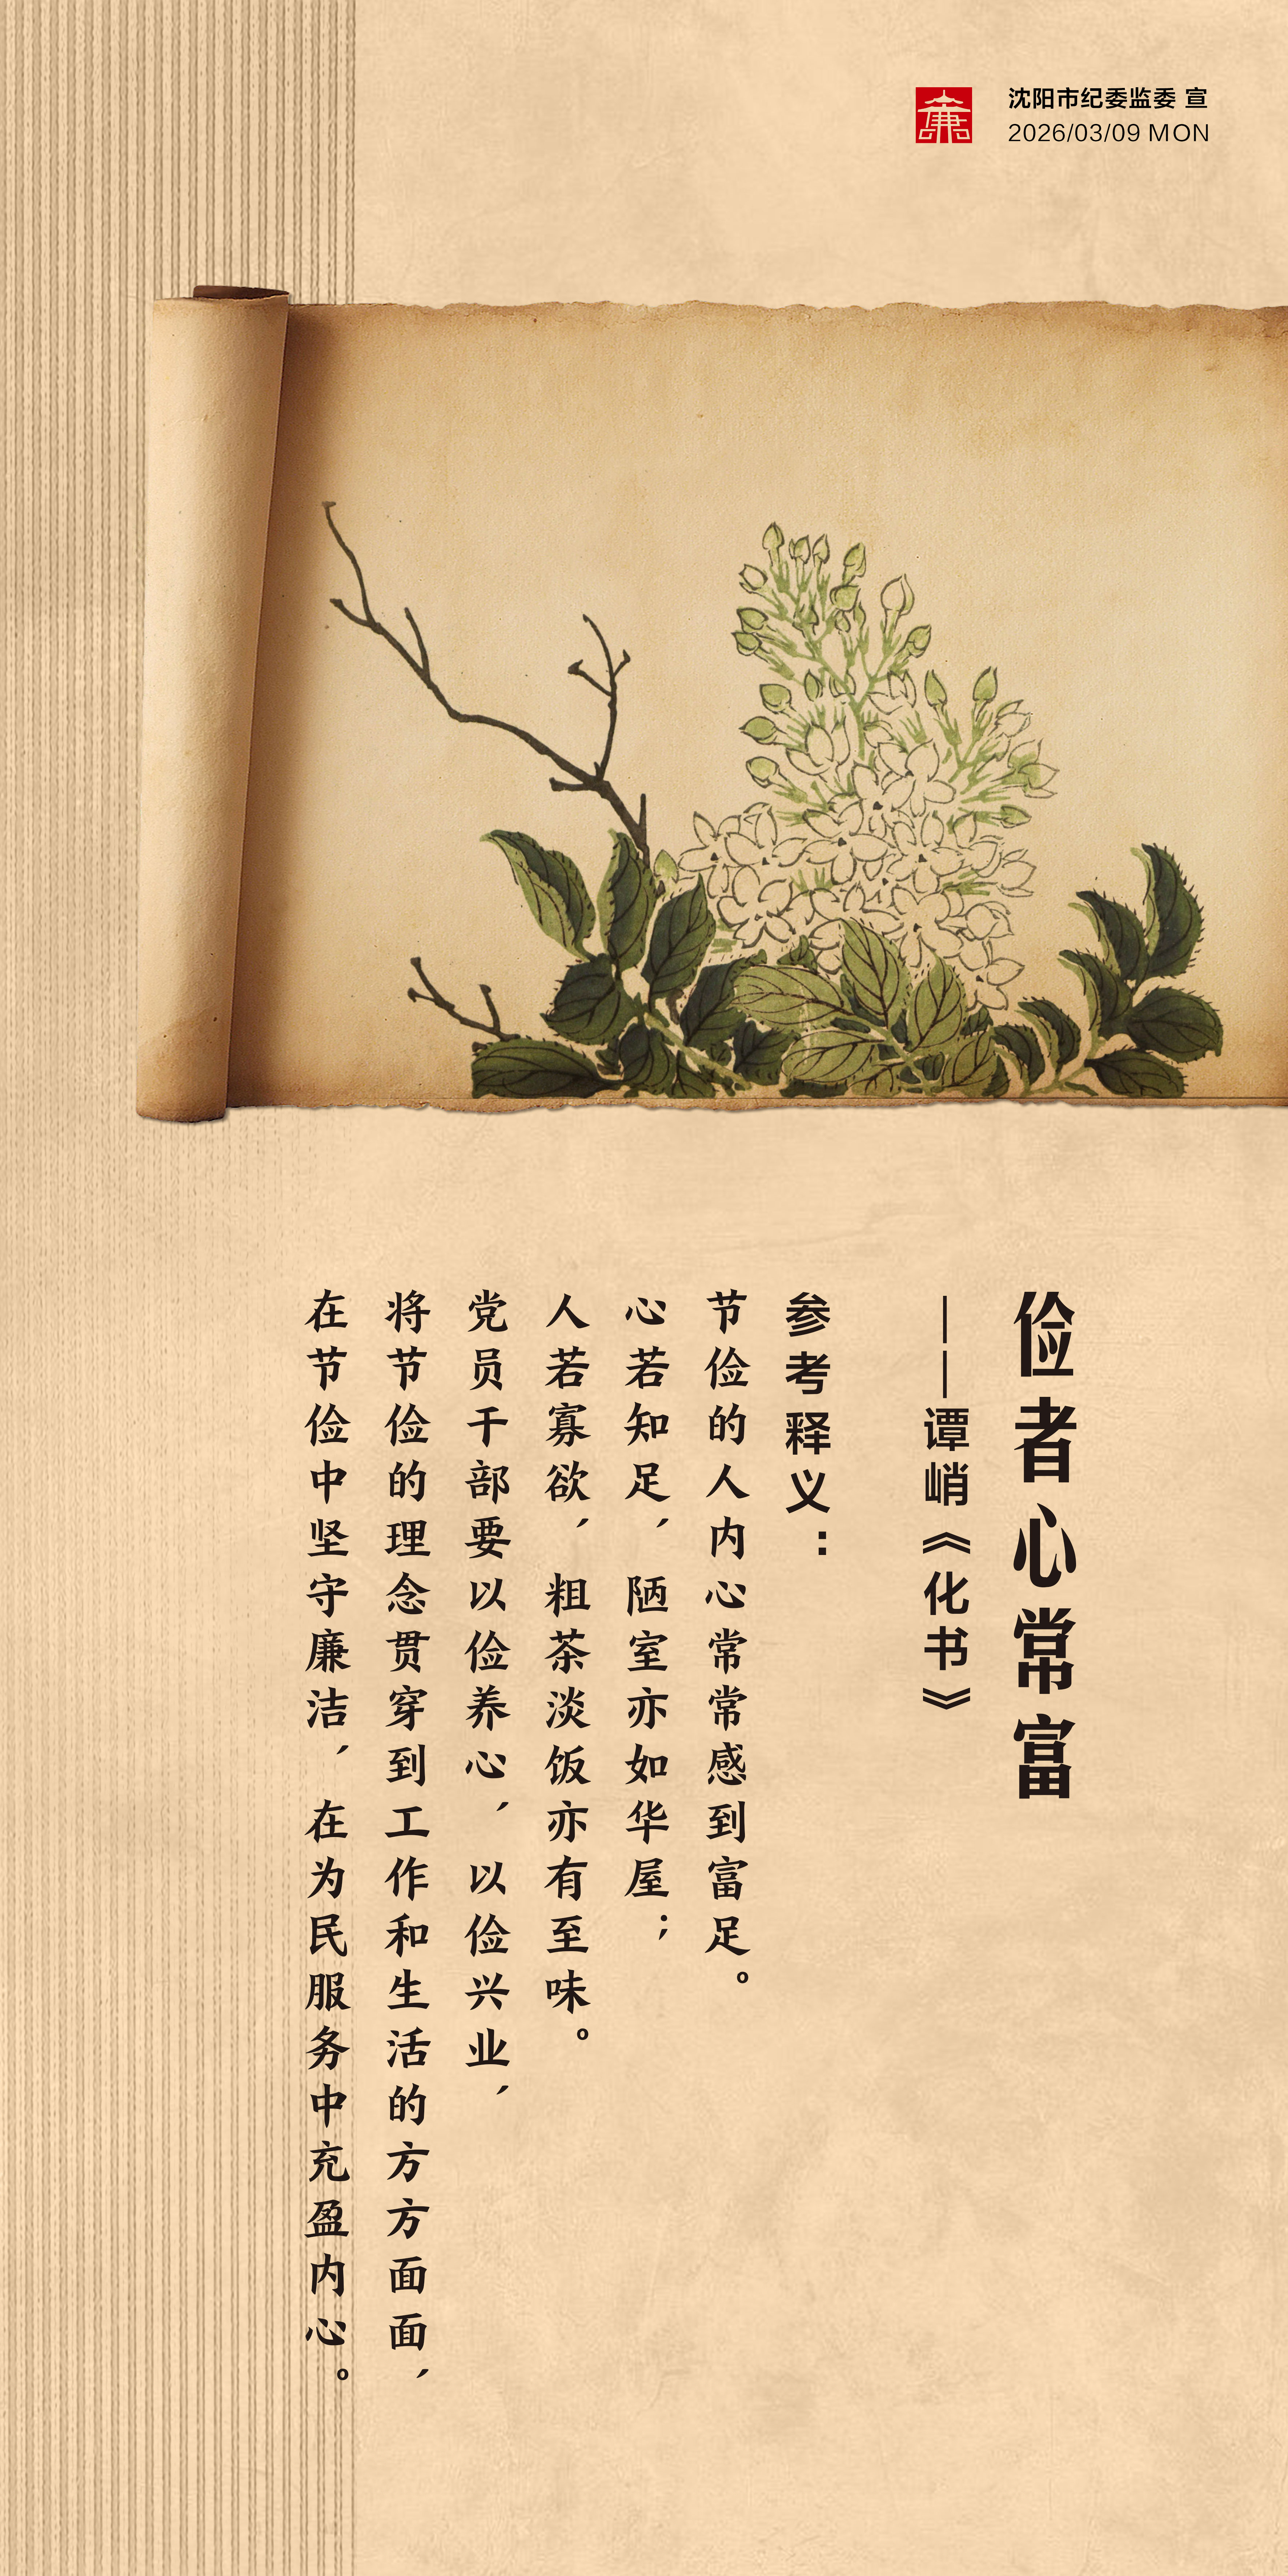 沈阳市纪委监委 宣
2026/03/09 MON
俭者心常富
——谭峭《化书》
参考释义：
节俭的人内心常常感到富足。
心若知足，陋室亦如华屋；
人若寡欲，粗茶淡饭亦有至味。
党员干部要以俭养心，以俭兴业，
将节俭的理念贯穿到工作和生活的方方面面，
在节俭中坚守廉洁，在为民服务中充盈内心。